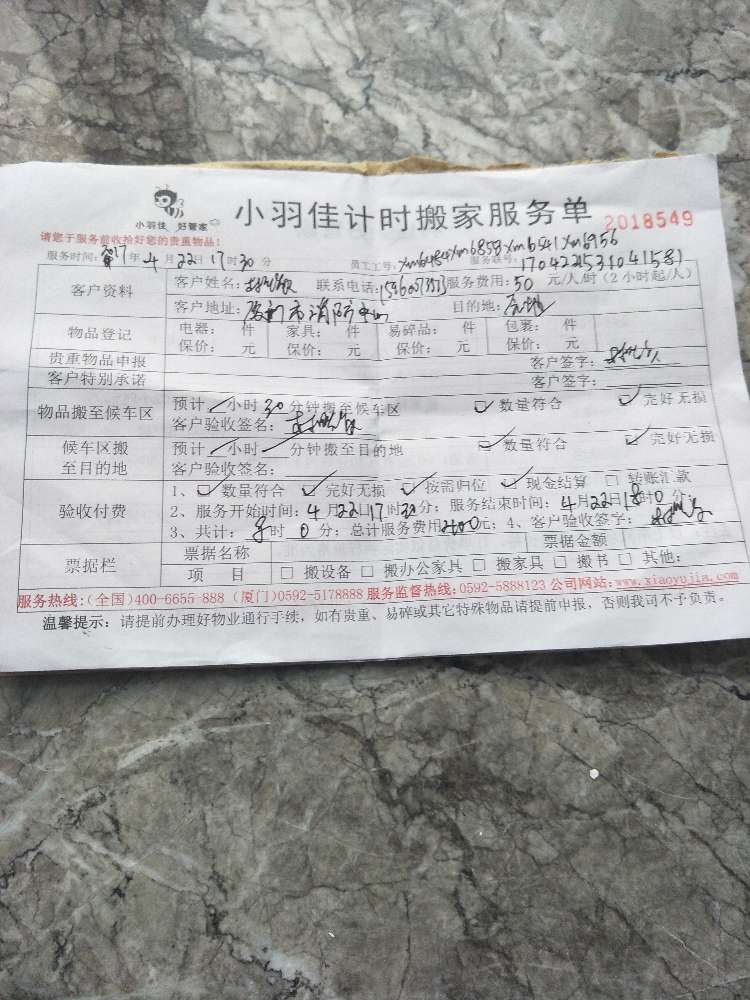 小羽佳 好管家
小羽佳计时搬家服务单
2018549
请您于服务前收拾好您的贵重物品！
服务时间：2017年4月22日17时30分
员工工号：xm6484xm6859xm6541xm6956
服务联号：170422531041581
客户资料
客户姓名： 联系电话： 服务费用：50元/人/时（2小时起/人）
客户地址：厦门市消防中心 目的地：
物品登记
电器： 件 家具： 件 易碎品： 件 包裹： 件
保价： 元 保价： 元 保价： 元 保价： 元
贵重物品申报 客户签字：
客户特别承诺 客户签字：
物品搬至候车区
预计 小时30分钟搬至候车区 数量符合 完好无损
客户验收签名：
候车区搬至目的地
预计 小时 分钟搬至目的地 数量符合 完好无损
客户验收签名：
验收付费
1、 数量符合 完好无损 按需归位 现金结算 转账汇款
2、服务开始时间：4月22日17时30分；服务结束时间：4月22日 时0分；
3、共计： 时0分；总计服务费用 元；4、客户验收签字：
票据栏
票据名称 票据金额
项 目 搬设备 搬办公家具 搬家具 搬书 其他：
服务热线：（全国）400-6655-888（厦门）0592-5178888 服务监督热线：0592-5888123 公司网站：www.xiaoyujia.com
温馨提示：请提前办理好物业通行手续，如有贵重、易碎或其它特殊物品请提前申报，否则我司不予负责。